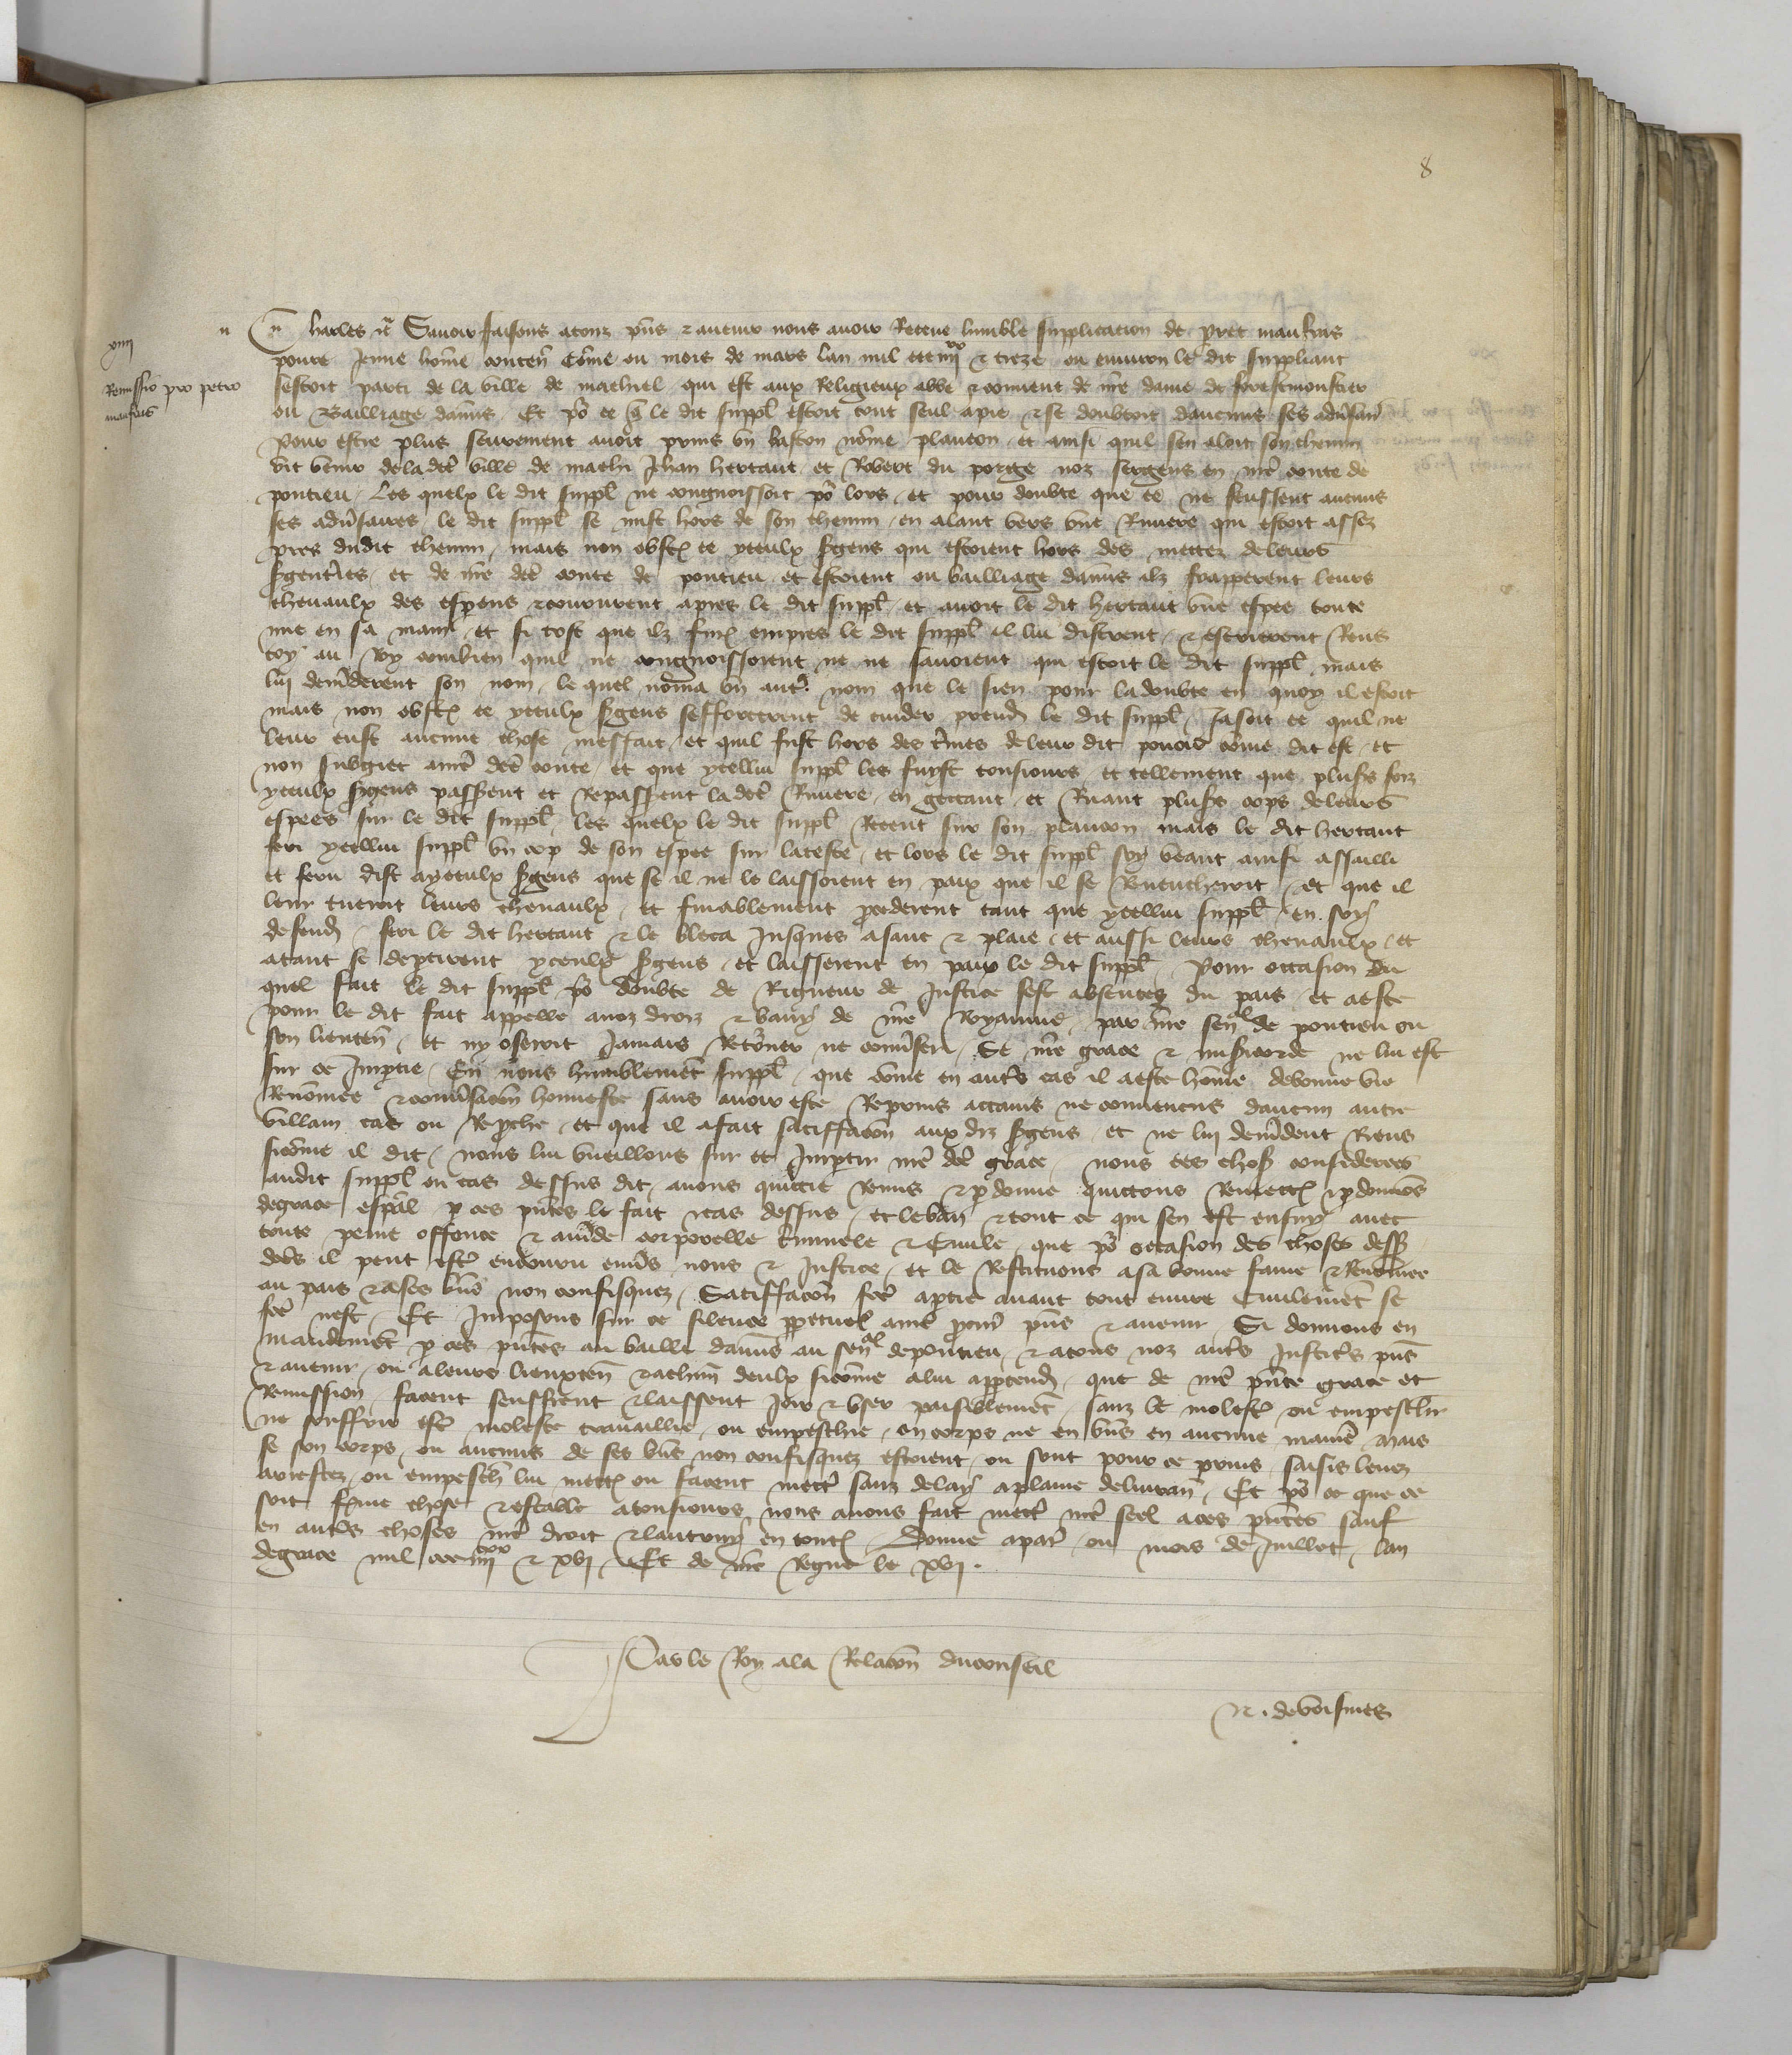 8
xiiii
Remissio pro petro
maufras
Charles etc Savoir faisons a touz pns et avenir nous avoir Receue lumble supplicacion de pret maufras
povre Jenne home conten come ou mois de mars lan mil ccc iiii xx et treze ou environ le dit suppliant
sestoit parti de la ville de machiel qui est aux Religieux abbe et convent de nre dame de forestmonstier
ou Bailliage damns Et po ce q le dit suppl estoit tout seul a pie et se doubtoit daucuns ses adversair
pour estre plus seurement avoit prins un baston nome plancon et ainsi quil sen aloit son chemin
vit venir de la dte ville de machi Jehan hertaut et Robert du porge noz sergens en nre conte de
pontieu Les quelx le dit suppl ne congnoissoit po lors et pour doubte que ce ne feussent aucuns
ses adversaires le dit suppl se mist hors de son chemin en alant vers une Riviere qui estoit assez
pres dudit chemin mais non obst ce yceulx sgens qui estoient hors des mettez de leurs
sgenties et de nre dte conte de pontieu et estoient ou bailliage damns ilz frapperent leurs
chevaulx des esperons et coururent apres le dit suppl et avoit le dit hertaut une espee toute
nue en sa main et si tost que ilz furent empres le dit suppl il lui distrent et escrierent Rens
toy au Roy combien quil ne congnoissoient ne ne savoient qui estoit le dit suppl mais
lui demanderent son nom le quel noma un autre nom que le sien pour la doubte en quoy il estoit
mais non obst ce yceulx sgens sefforcerent de cuider prendre le dit suppl Jasoit ce quil ne
leur eust aucune chose meffait et quil fust hors des termes de leur dit povoir come dit est et
non subgiet a nre dte conte et que ycellui suppl les fuyst tousiours et tellement que plusrs foiz
yceulx sgens passerent et Repasserent la dte Riviere en gettant et Ruant plusrs cops de leurs
espees sur le dit suppl les quelx le dit suppl Recent sur son plancon mais le dit hertaut
feri ycellui suppl un cop de son espee sur la teste et lors le dit suppl soy veant ainsi assailli
et feru dist a yceulx sgens que se il ne le laissoient en paix que il se Revencheroit et que il
leur tueroit leurs chevaulx et finablement procederent tant que ycellui suppl en soy
defend feri le dit hertaut et le bleca Jusques a sanc et plaie et aussi leurs chevaulx et
atant se deptirent yceulx sgens et laisserent en paix le dit suppl Pour occasion du
quel fait le dit suppl po doubte de Rigueur de Justice sest absentez du pais et a este
pour le dit fait appelle a noz droiz et bany de nre Royaume par nre senl de pontieu ou
son lieuten et ny oseroit Jamais Retorner ne conviser Se nre grace et misicorde ne lui est
sur ce Imptie En nous humblement suppl que come en autrs cas il a este home de bonne vie
Renomee et convsacon honneste sans avoir este Reprins attains ne convencus daucun autre
villain cas ou Reproche et que il a fait satiffacon aux diz sgens et ne lui demandent Riens
sicome il dit nous lui vueillons sur ce Impartir nre dte grace nous ces chos considerees
audit suppl ou cas dessus dit avons quittie Remis et pdonne quittons Remett et pdonnons
de grace espal p ces pntes le fait et cas dessus et le ban et tout ce qui sen est ensuy avec
toute peine offence et amde corporelle criminele et Civile que po occasion des choses dess
dcs il peut estre encouru envs nous et Justice et le Restituons a sa bonne fame et Renomee
au pais et a ses bns non confisquez Satiffacon fte a ptie avant tout euvre Civilement se
fte nest Et Imposons sur ce silence ppetuel a nre procur pns et avenir Si donnons en
mandement p ces pntes au bailli damns au senal de pontieu et a touz noz autrs Justicrs pns
et avenir ou a leurs lieuxten et a chun deulx sicome a lui apptend que de nre pnte grace et
Remission facent seuffrent et laissent Joir et user paisiblement sanz le molest ou empeschir
ne souffrir estre moleste travaillie ou empeschie en corps ne en bns en aucune maniere Mais
se son corps ou aucuns de ses bns non confisquez estoient ou sont pour ce prins saisis levez
arrestez ou empesch lui mett ou facent mettre sanz delay a plaine delivran Et po ce que ce
soit ferme chose et estable a tousiours nous avons fait mettre nre seel a ces pntes sauf
en autres choses nre droit et lautruy en tout Donne a paris ou mois de Juillet lan
de grace mil ccc iiii xx et xvi Et de nre Regne le xvi
Par le Roy a la Relacon du conseil
N. de voisines